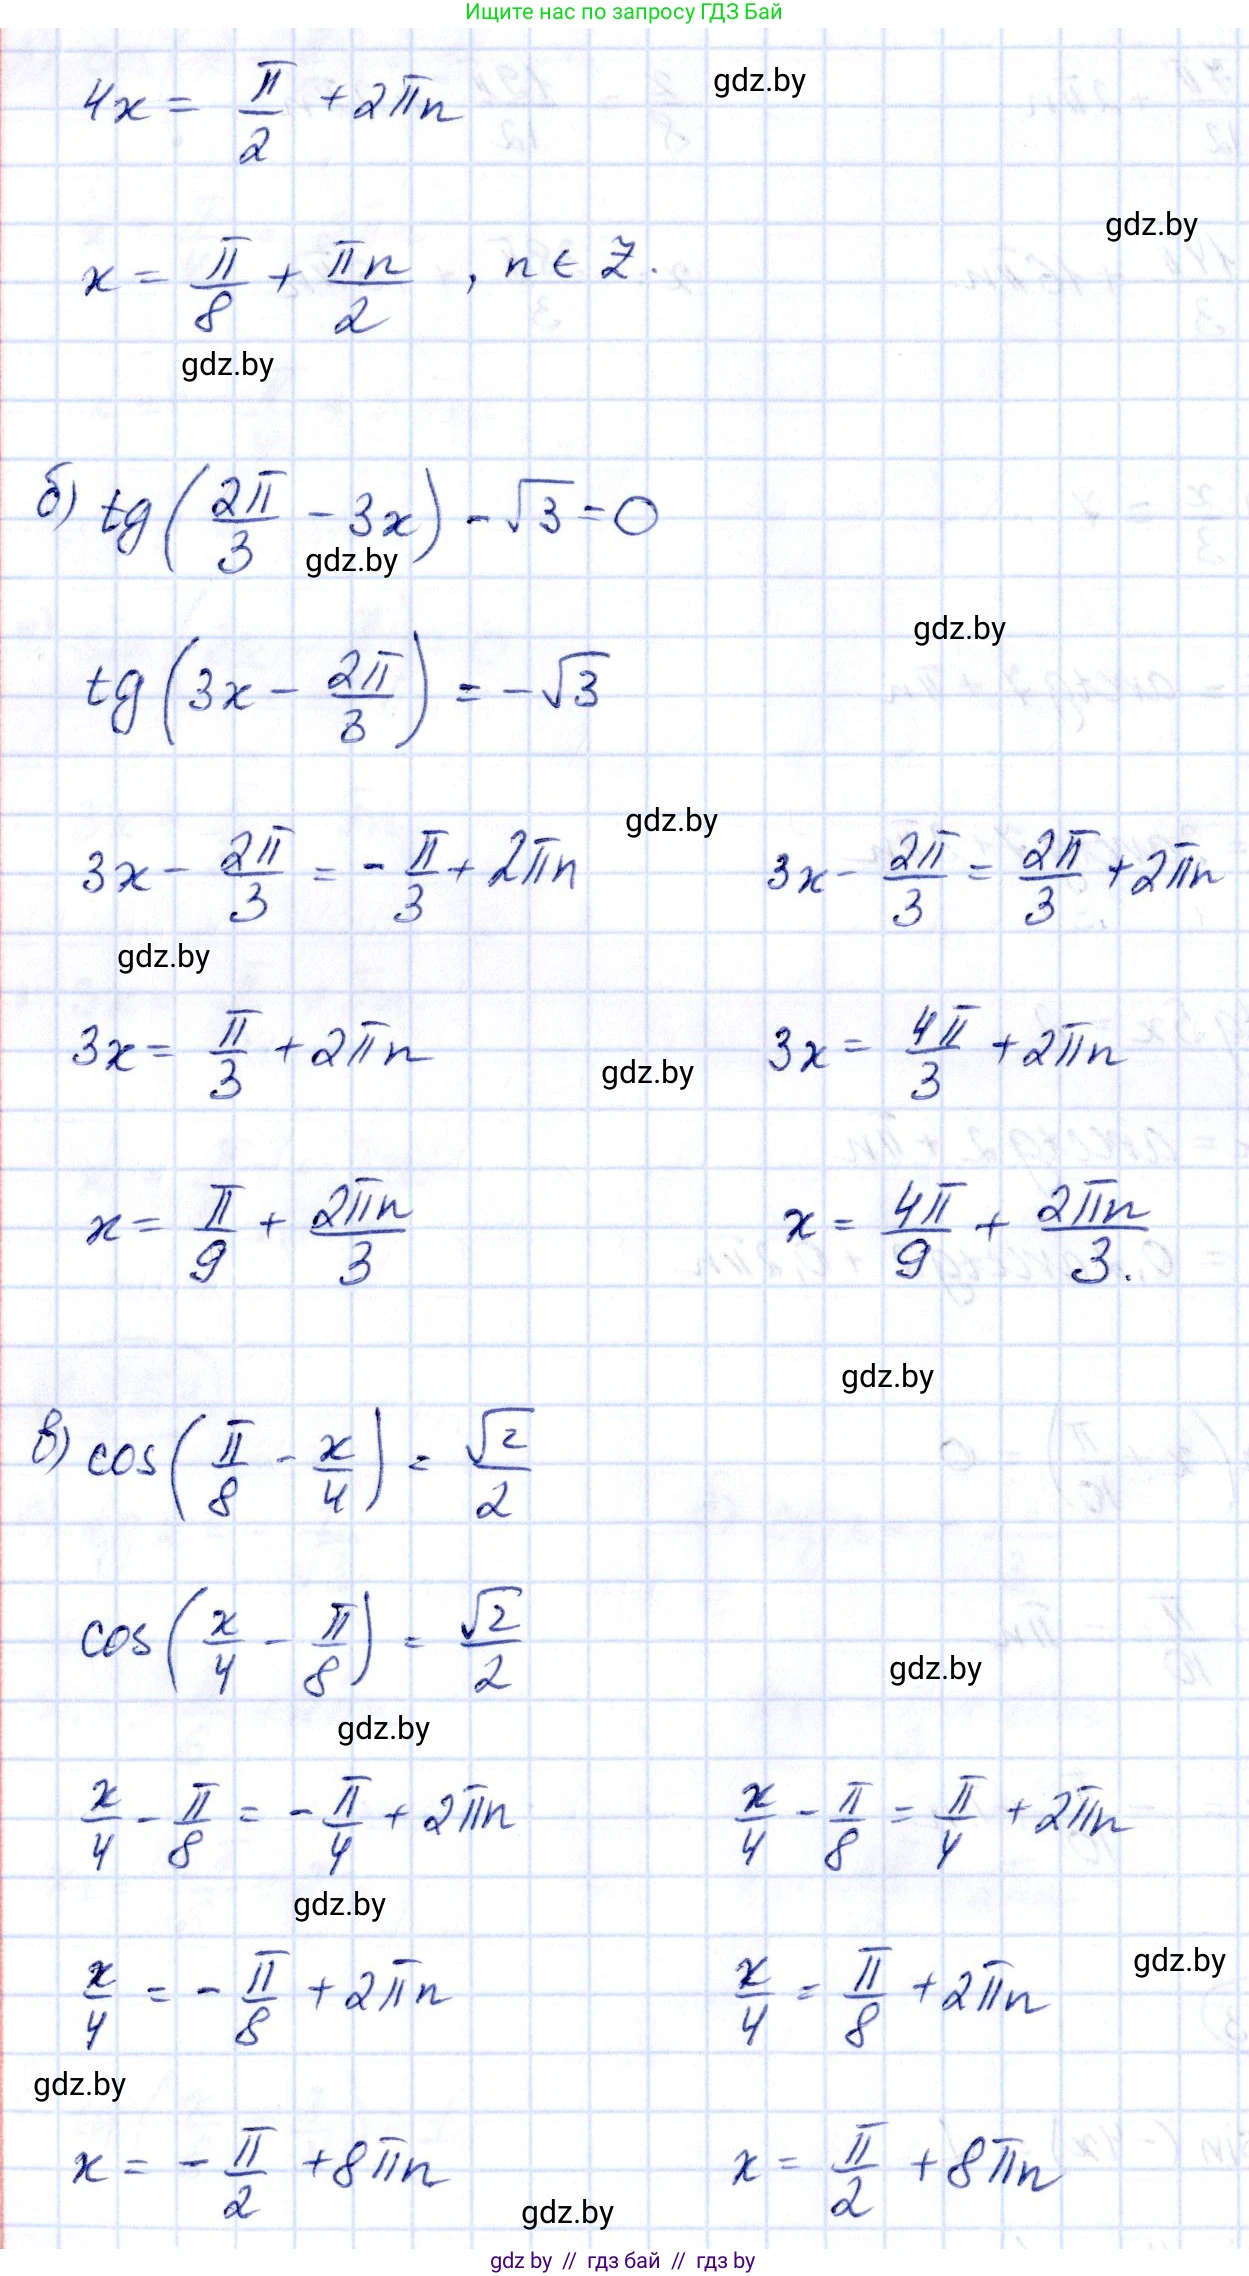 Ищите нас по запросу ГДЗ Бай
4x = π/2 + 2πn
gdz.by
gdz.by
x = π/8 + πn/2 , n ∈ Z.
gdz.by
б) tg(2π/3 - 3x) - √3 = 0
gdz.by
gdz.by
tg(3x - 2π/3) = -√3
gdz.by
3x - 2π/3 = -π/3 + 2πn 3x - 2π/3 = 2π/3 + 2πn
gdz.by
3x = π/3 + 2πn 3x = 4π/3 + 2πn
gdz.by
x = π/9 + 2πn/3 x = 4π/9 + 2πn/3.
gdz.by
в) cos(π/8 - x/4) = √2/2
cos(x/4 - π/8) = √2/2
gdz.by
gdz.by
x/4 - π/8 = -π/4 + 2πn x/4 - π/8 = π/4 + 2πn
gdz.by
gdz.by
x/4 = -π/8 + 2πn x/4 = π/8 + 2πn
gdz.by
x = -π/2 + 8πn x = π/2 + 8πn
gdz.by
gdz by // гдз бай // гдз by